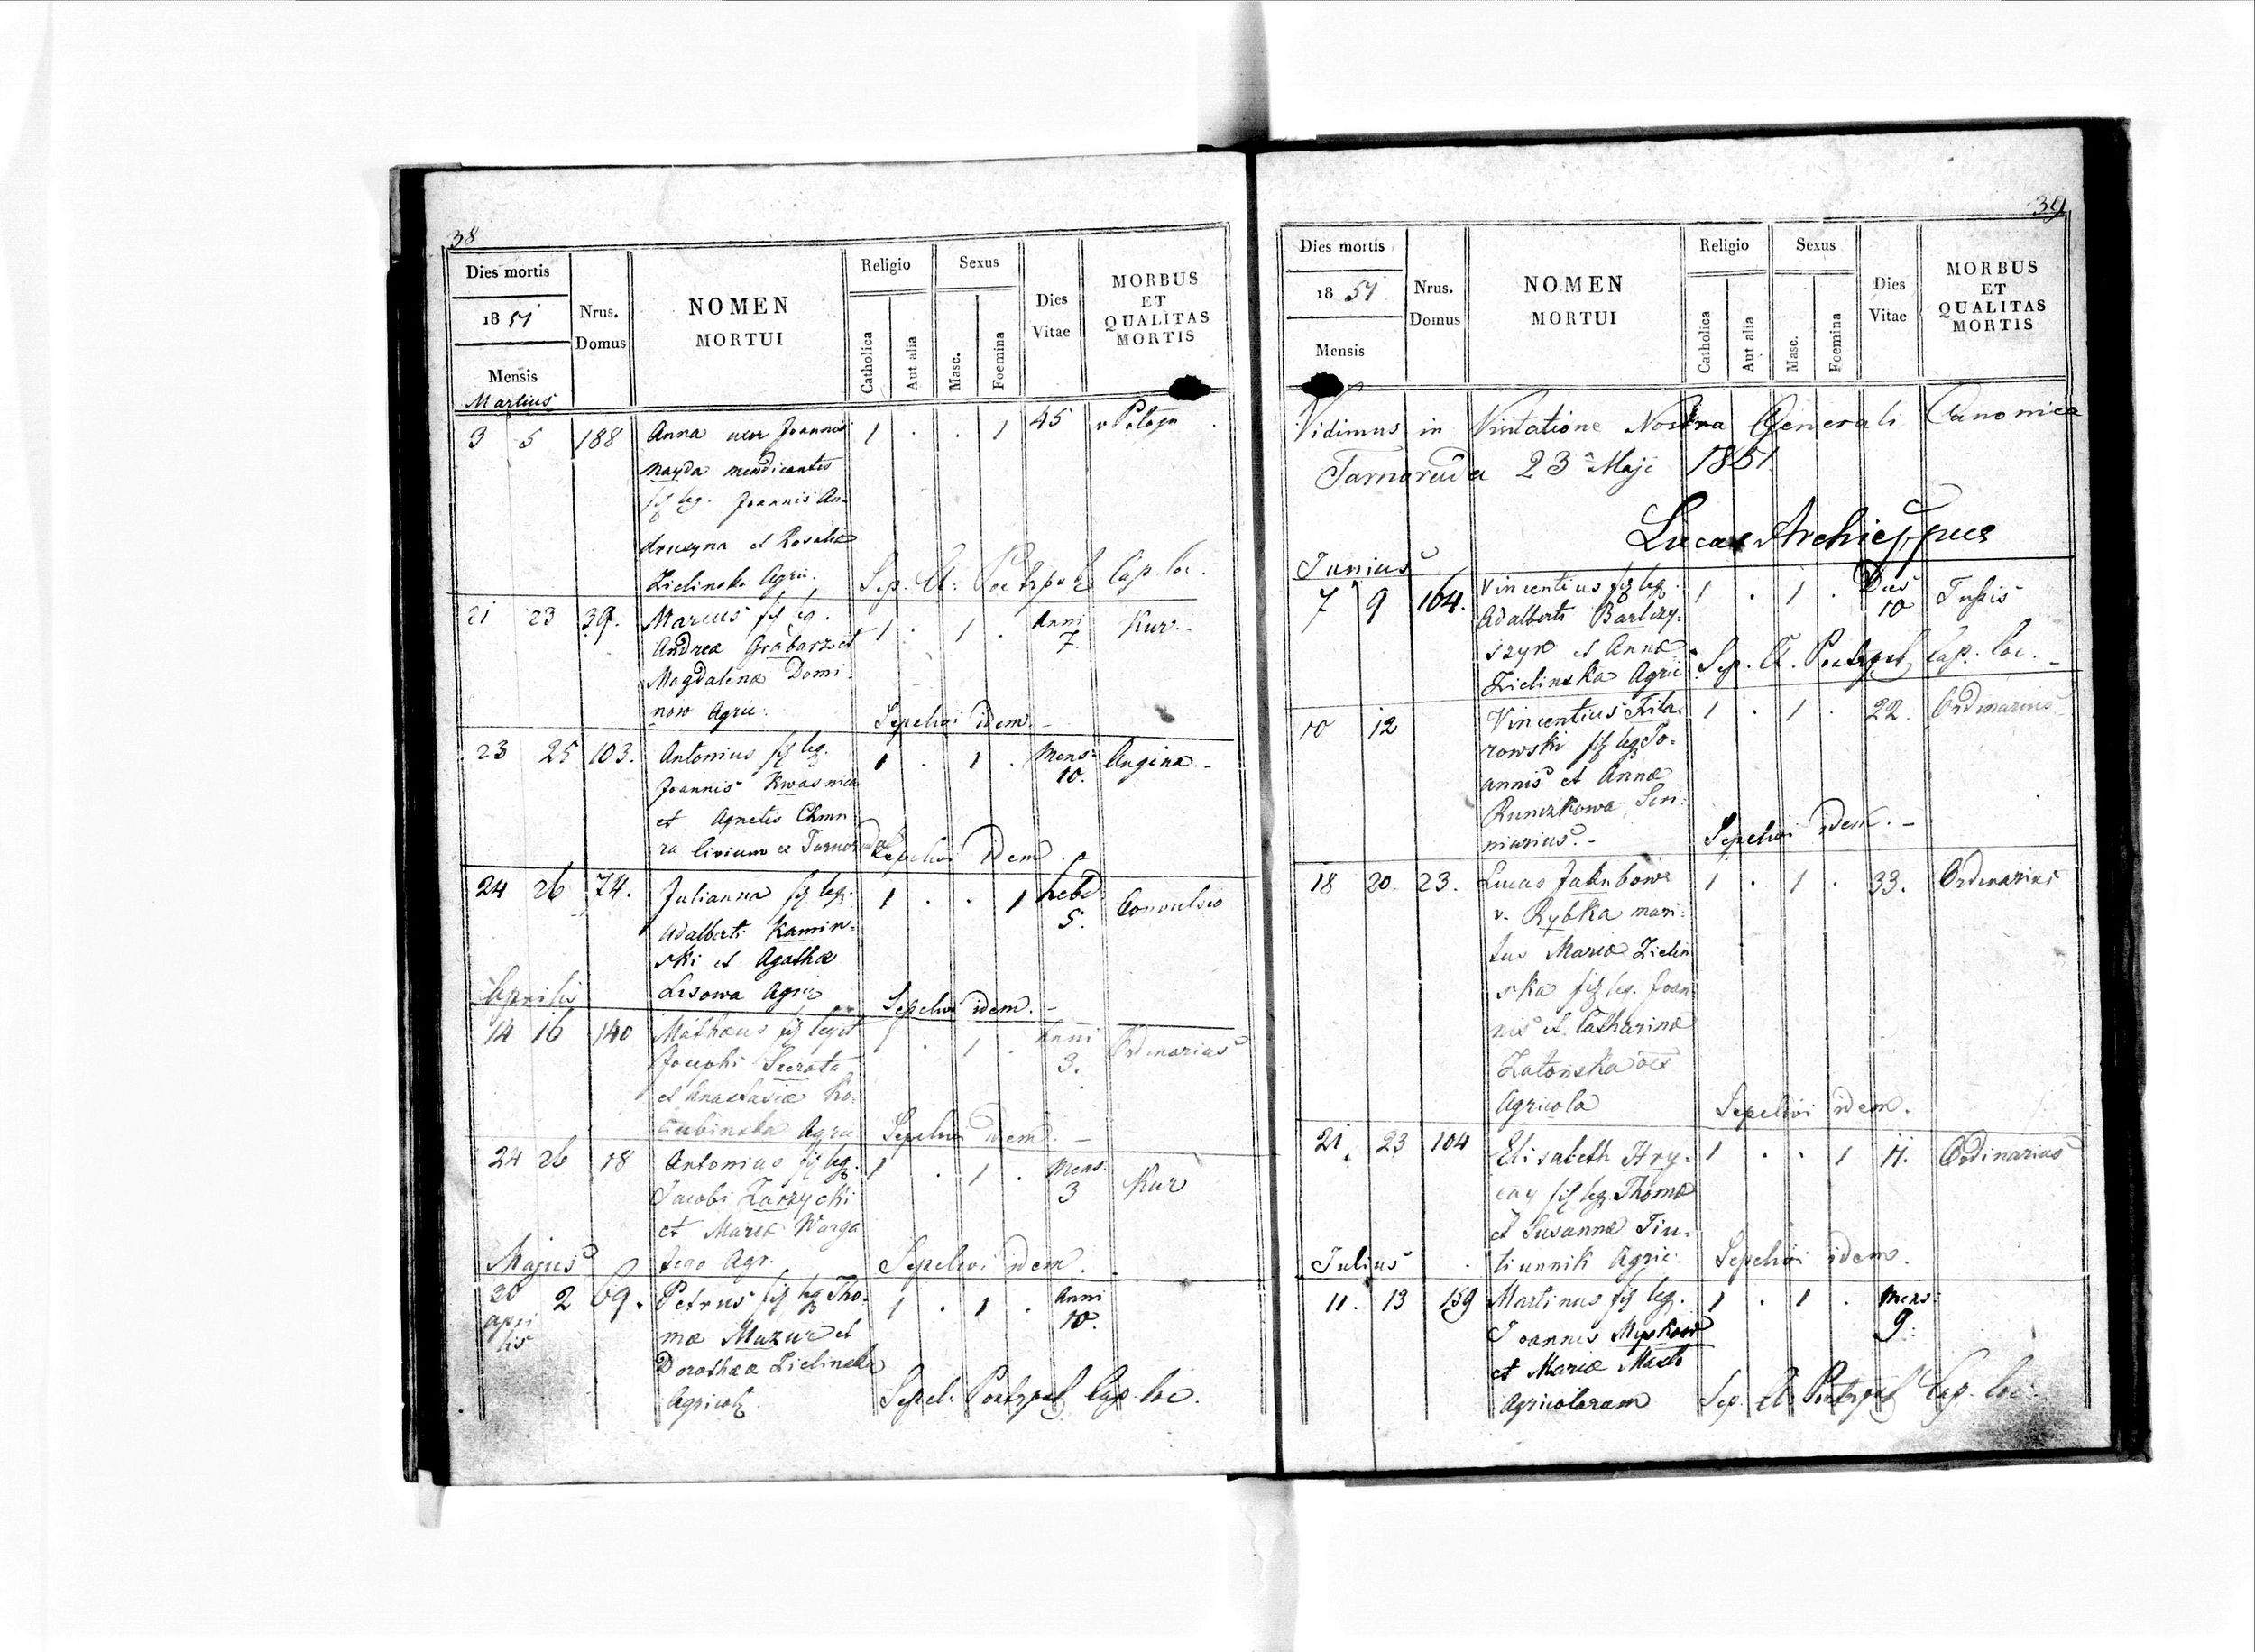 38
Dies mortis
1851
Mensis
Nrus.
Domus
NOMEN
MORTUI
Religio
Catholica
Aut alia
Sexus
Masc.
Foemina
Dies
Vitae
MORBUS
ET
QUALITAS
MORTIS
Martius
3 5 188 Anna uxor Joannis 1 . . 1 45
Nayda mendicantis
fil leg. Joannis An-
drusyna et Rosaliae
Zielinska Agric. Sep. A. Cap. loc.
21 23 39. Marcus fil leg. 1 . 1 . Anni 7. Kur.-
Andreae Grabarz et
Magdalenae Domi-
now Agric. Sepelivi idem.-
23 25 103. Antonius fil leg. 1 . 1 . Mens: 10. Angina.-
Joannis Kwasnica
et Agnetis Chmu
ra Civium ex Tarnoruda Sepelivi idem.
24 26 74. Julianna fil leg. 1 . . 1 hebd 5. Convulsio
Adalberti Kamin-
ski et Agathae
Lisowa Agric Sepelivi idem.-
Aprilis
14 16 140 Mathaeus fil leg 1 . 1 . Anni 3. Ordinarius
Josephi
et Anastasiae Ko-
ciubinska Agric Sepelivi idem.-
24 26 18 Antonius fil leg. 1 . 1 . Mens: 3 Kur
Jacobi Zarzycki
et Mariae Warga
Agr. Sepelivi idem.
Majus
20 2 69. Petrus fil leg Tho- 1 . 1 . Anni 10.
apri
lis
mae Mazur et
Dorotheae Zielinska
Agricol. Sepel. Cap. loc.
39
Dies mortis
1851
Mensis
Nrus.
Domus
NOMEN
MORTUI
Religio
Catholica
Aut alia
Sexus
Masc.
Foemina
Dies
Vitae
MORBUS
ET
QUALITAS
MORTIS
Vidimus in Visitatione Nostra Generali Canonica
Tarnoruda 23 Maji 1851
Lucas Archieppus
Junius
7 9 164. Vincentius fil leg. 1 . 1 . Dies 10 Tussis
Adalberti Bartczy-
szyn et Annae
Zielinska Agric. Sep. A. Cap. loc.-
10 12 Vincentius Fila- 1 . 1 . 22. Ordinarius
rowski fil leg Jo-
annis et Annae
Sepelivi idem.-
18 20 23. Lucas Jakubow 1 . 1 . 33. Ordinarius
v. Rybka mari-
tus Mariae Zielin
ska fil leg. Joan
nis et Catharinae
Zatońska
Agricola Sepelivi idem.
21. 23 104 Elisabeth Hry- 1 . . 1 11. Ordinarius
cay fil leg. Thomae
et Susannae Tiu-
tiunnik Agric. Sepelivi idem.
Julius
11. 13 159 Martinus fil leg. 1 . 1 . Mens: 9.
Joannis Myskow
et Mariae
Agricolarum Sep. A. Cap. loc.